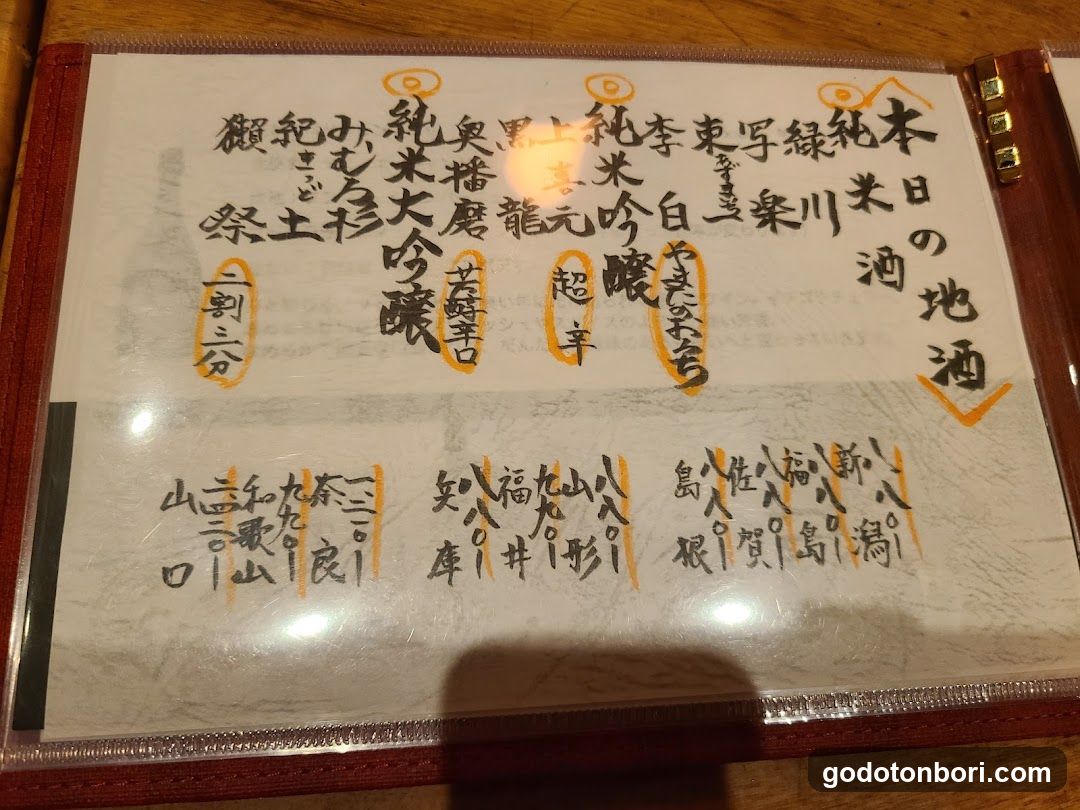 本日の地酒
純米酒
緑川 八八〇ー 新潟
写楽 八八〇ー 福島
東一 あずまいち 八八〇ー 佐賀
李白 やまたのおろち 八八〇ー 島根
純米吟醸
上喜元 超辛 八八〇ー 山形
黒龍 九九〇ー 福井
奥播磨 芳醇辛口 八八〇ー 兵庫
純米大吟醸
みむろ杉 一二一〇ー 奈良
紀土 きっど 九九〇ー 和歌山
獺祭 二割三分 二四二〇ー 山口
godotonbori.com